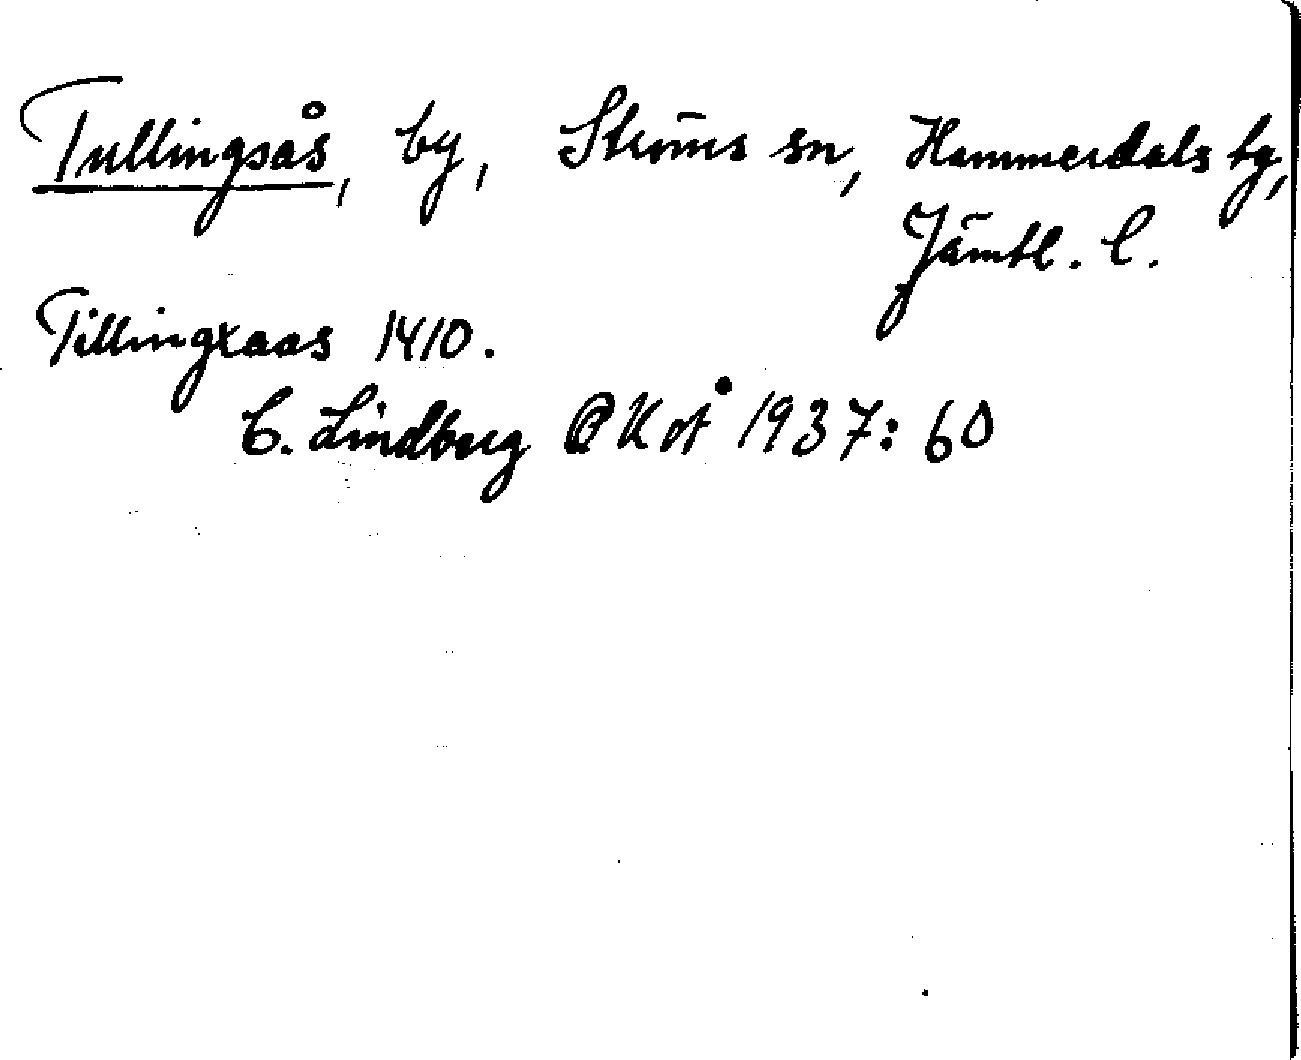 Tullingsås, by, Ströms sn, Hammerdals tg,
Jämtl. l.
Tillingxaas 1410.
C. Lindberg 1937: 60